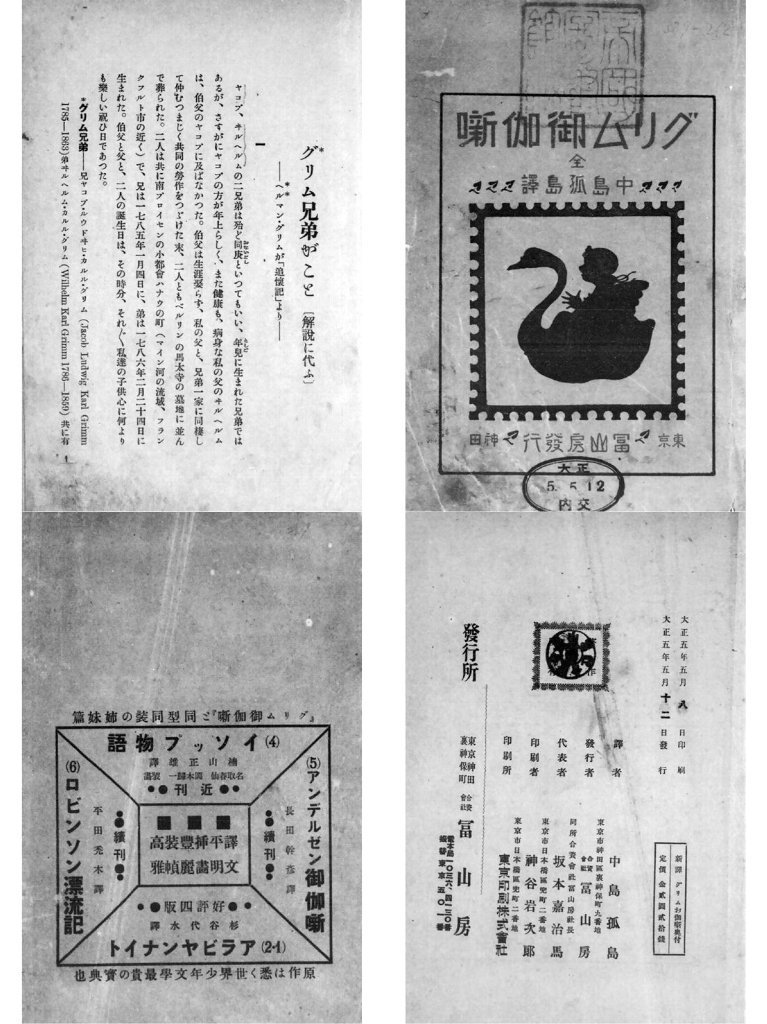 グリム御伽噺
全
中島孤島譯
東京 冨山房發行 神田
大正
5.5.12
内交
グリム兄弟がこと〔解說に代ふ〕
――ヘルマン・グリムが「追懷記」より――
一
ヤコブ、ヰルヘルムの二兄弟は殆ど同庚といつてもいい、年兒に生まれた兄弟では
あるが、さすがにヤコブの方が年上らしく、また健康も、病身な私の父のヰルヘルム
は、伯父のヤコブに及ばなかつた。伯父は生涯娶らず、私の父と、兄弟一家に同棲し
て仲むつまじく共同の勞作をつゞけた末、二人ともベルリンの馬太寺の墓地に並ん
で葬られた。二人は共に南プロイセンの小都會ハナウの町(マイン河の流域、フラン
クフルト市の近く)で、兄は一七八五年一月四日に、弟は一七八六年二月二十四日に
生まれた。伯父と父と、二人の誕生日は、その時分、それ〴〵私達の子供心に何より
も樂しい祝ひ日であつた。
*グリム兄弟――兄ヤコブ・ルウドヰヒ・カルル・グリム (Jacob Ludwig Karl Grimm
1785―1863)弟ヰルヘルム・カルル・グリム (Wilhelm Karl Grimm 1786―1859) 共に有
1
大正五年五月八日印刷
大正五年五月十二日發行
新譯グリムお伽噺奧付
定價金貳圓貳拾錢
譯者 中島孤島
東京市神田區裏神保町九番地
發行者 合資會社 冨山房
同所合資會社冨山房社長
代表者 坂本嘉治馬
東京市日本橋區兜町二番地
印刷者 神谷岩次郎
東京市日本橋區兜町二番地
印刷所 東京印刷株式會社
發行所 東京神田裏神保町 合資會社 冨山房
電本局一〇三六、四一三〇番
振替東京五〇一番
『グリム御伽噺』と同型同裝の姉妹篇
(4)イソップ物語
楠山正雄譯
●●近刊●●
(5)アンデルゼン御伽噺
長田幹彦譯
●●續刊●●
(6)ロビンソン漂流記
平田禿木譯
●●續刊●●
譯文平明
挿畵豐麗
裝幀高雅
●●好評四版●●
杉谷代水譯
(2-1)アラビヤンナイト
原作は悉く世界少年文學最貴の寶典也